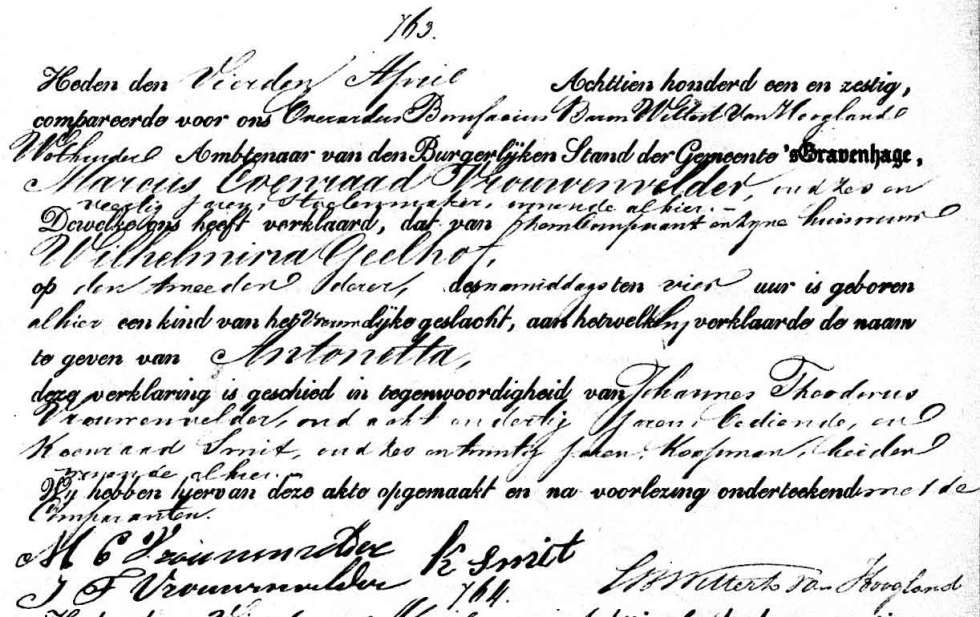 763.
Heden den Vierden April Achttien honderd een en zestig,
compareerde voor ons Everardus Bonifacius Baron Wittert Van Hoogland
Wethouder Ambtenaar van den Burgerlijken Stand der Gemeente 'sGravenhage,
Marcus Coenraad Vrouwenvelder, oud zes en
veertig jaren, Stoelenmaker, wonende alhier.—
Dewelke ons heeft verklaard, dat van hem Comparant en zijne huisvrouw
Wilhelmina Geelhof,
op den tweeden dezer, des namiddags ten vier uur is geboren
alhier een kind van het Vrouwelijke geslacht, aan hetwelk hij verklaarde de naam
te geven van Antonetta,
deze verklaring is geschied in tegenwoordigheid van Johannes Theodorus
Vrouwenvelder, oud acht en dertig Jaren, bediende, en
Koenraad Smit, oud zes en twintig Jaren, Koopman, beiden
wonende alhier.—
Wij hebben hiervan deze akte opgemaakt en na voorlezing onderteekend met de
Comparanten.
M C Vrouwenvelder K Smit
J T Vrouwenvelder Wittert Van Hoogland
764.